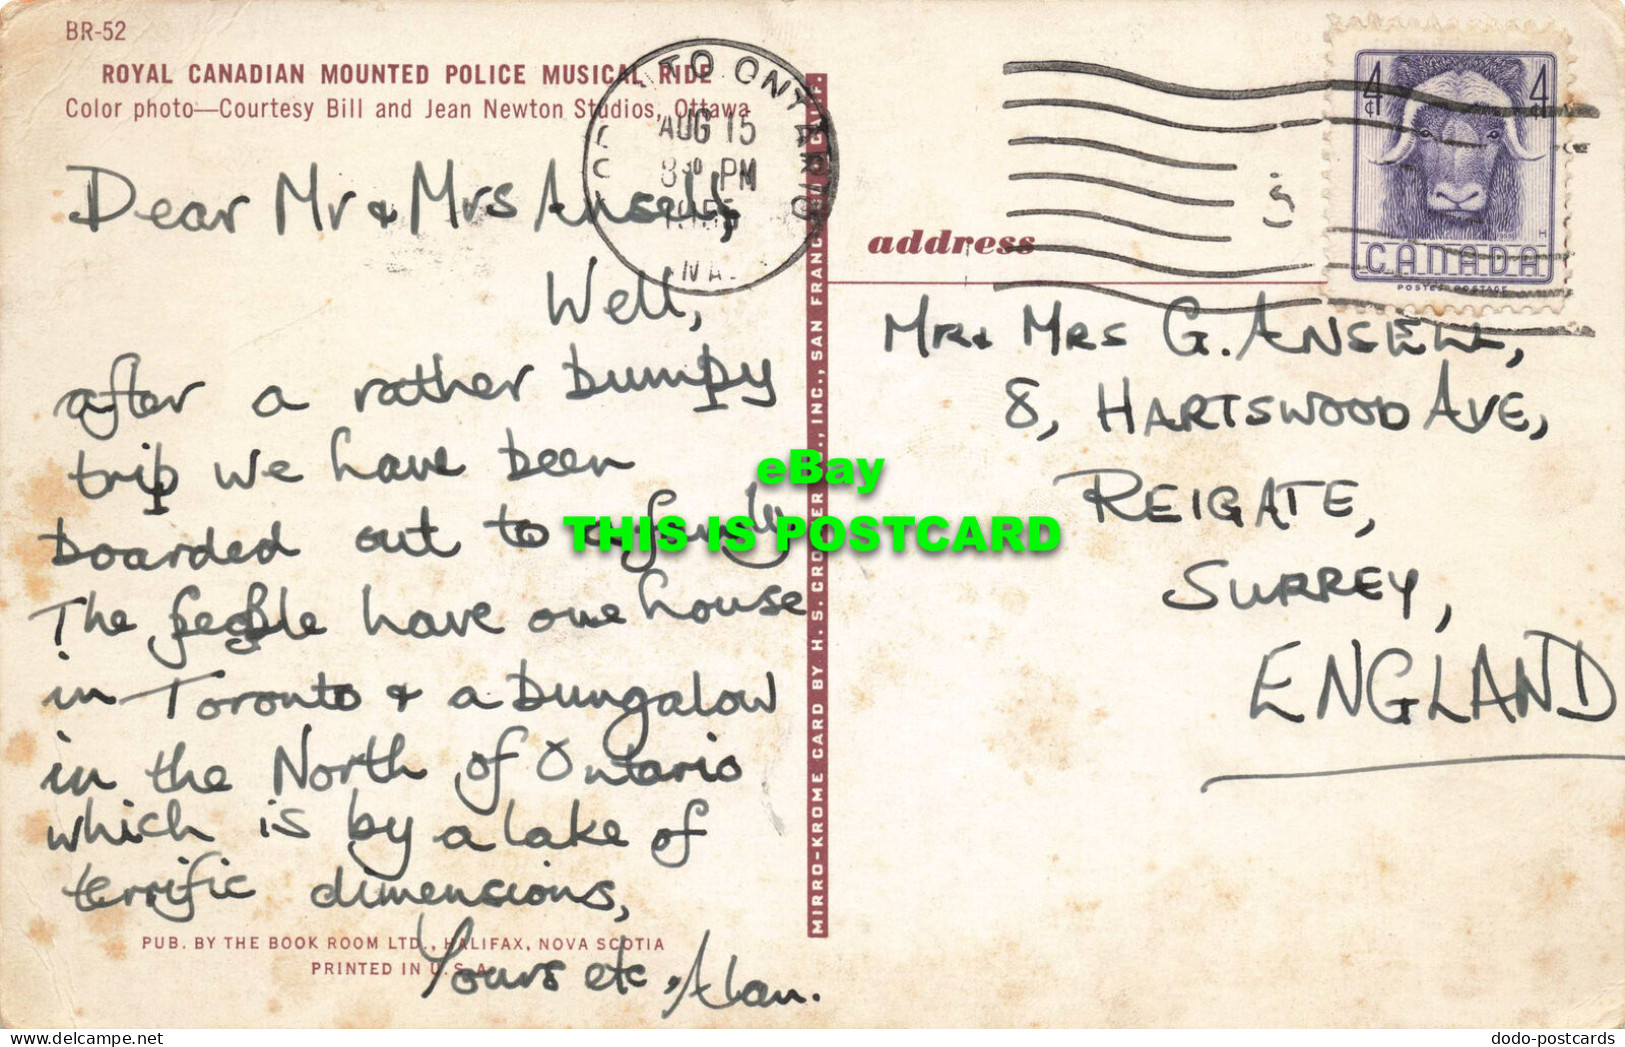 BR-52
ROYAL CANADIAN MOUNTED POLICE MUSICAL RIDE
Color photo—Courtesy Bill and Jean Newton Studios, Ottawa
Dear Mr & Mrs Ansell,
Well,
after a rather bumpy
trip we have been
boarded out to a family
The people have one house
in Toronto & a bungalow
in the North of Ontario
which is by a lake of
terrific dimensions,
Yours etc, Alan.
PUB. BY THE BOOK ROOM LTD., HALIFAX, NOVA SCOTIA
PRINTED IN U.S.A.
ONTARIO
AUG 15
830 PM
MIRRO-KROME CARD BY H. S. CROCKER CO., INC., SAN FRANCISCO, CALIF.
4¢ 4¢
CANADA
POSTES POSTAGE
address
Mr & Mrs G. Ansell,
8, Hartswood Ave,
Reigate,
Surrey,
ENGLAND
eBay
THIS IS POSTCARD
dodo-postcards